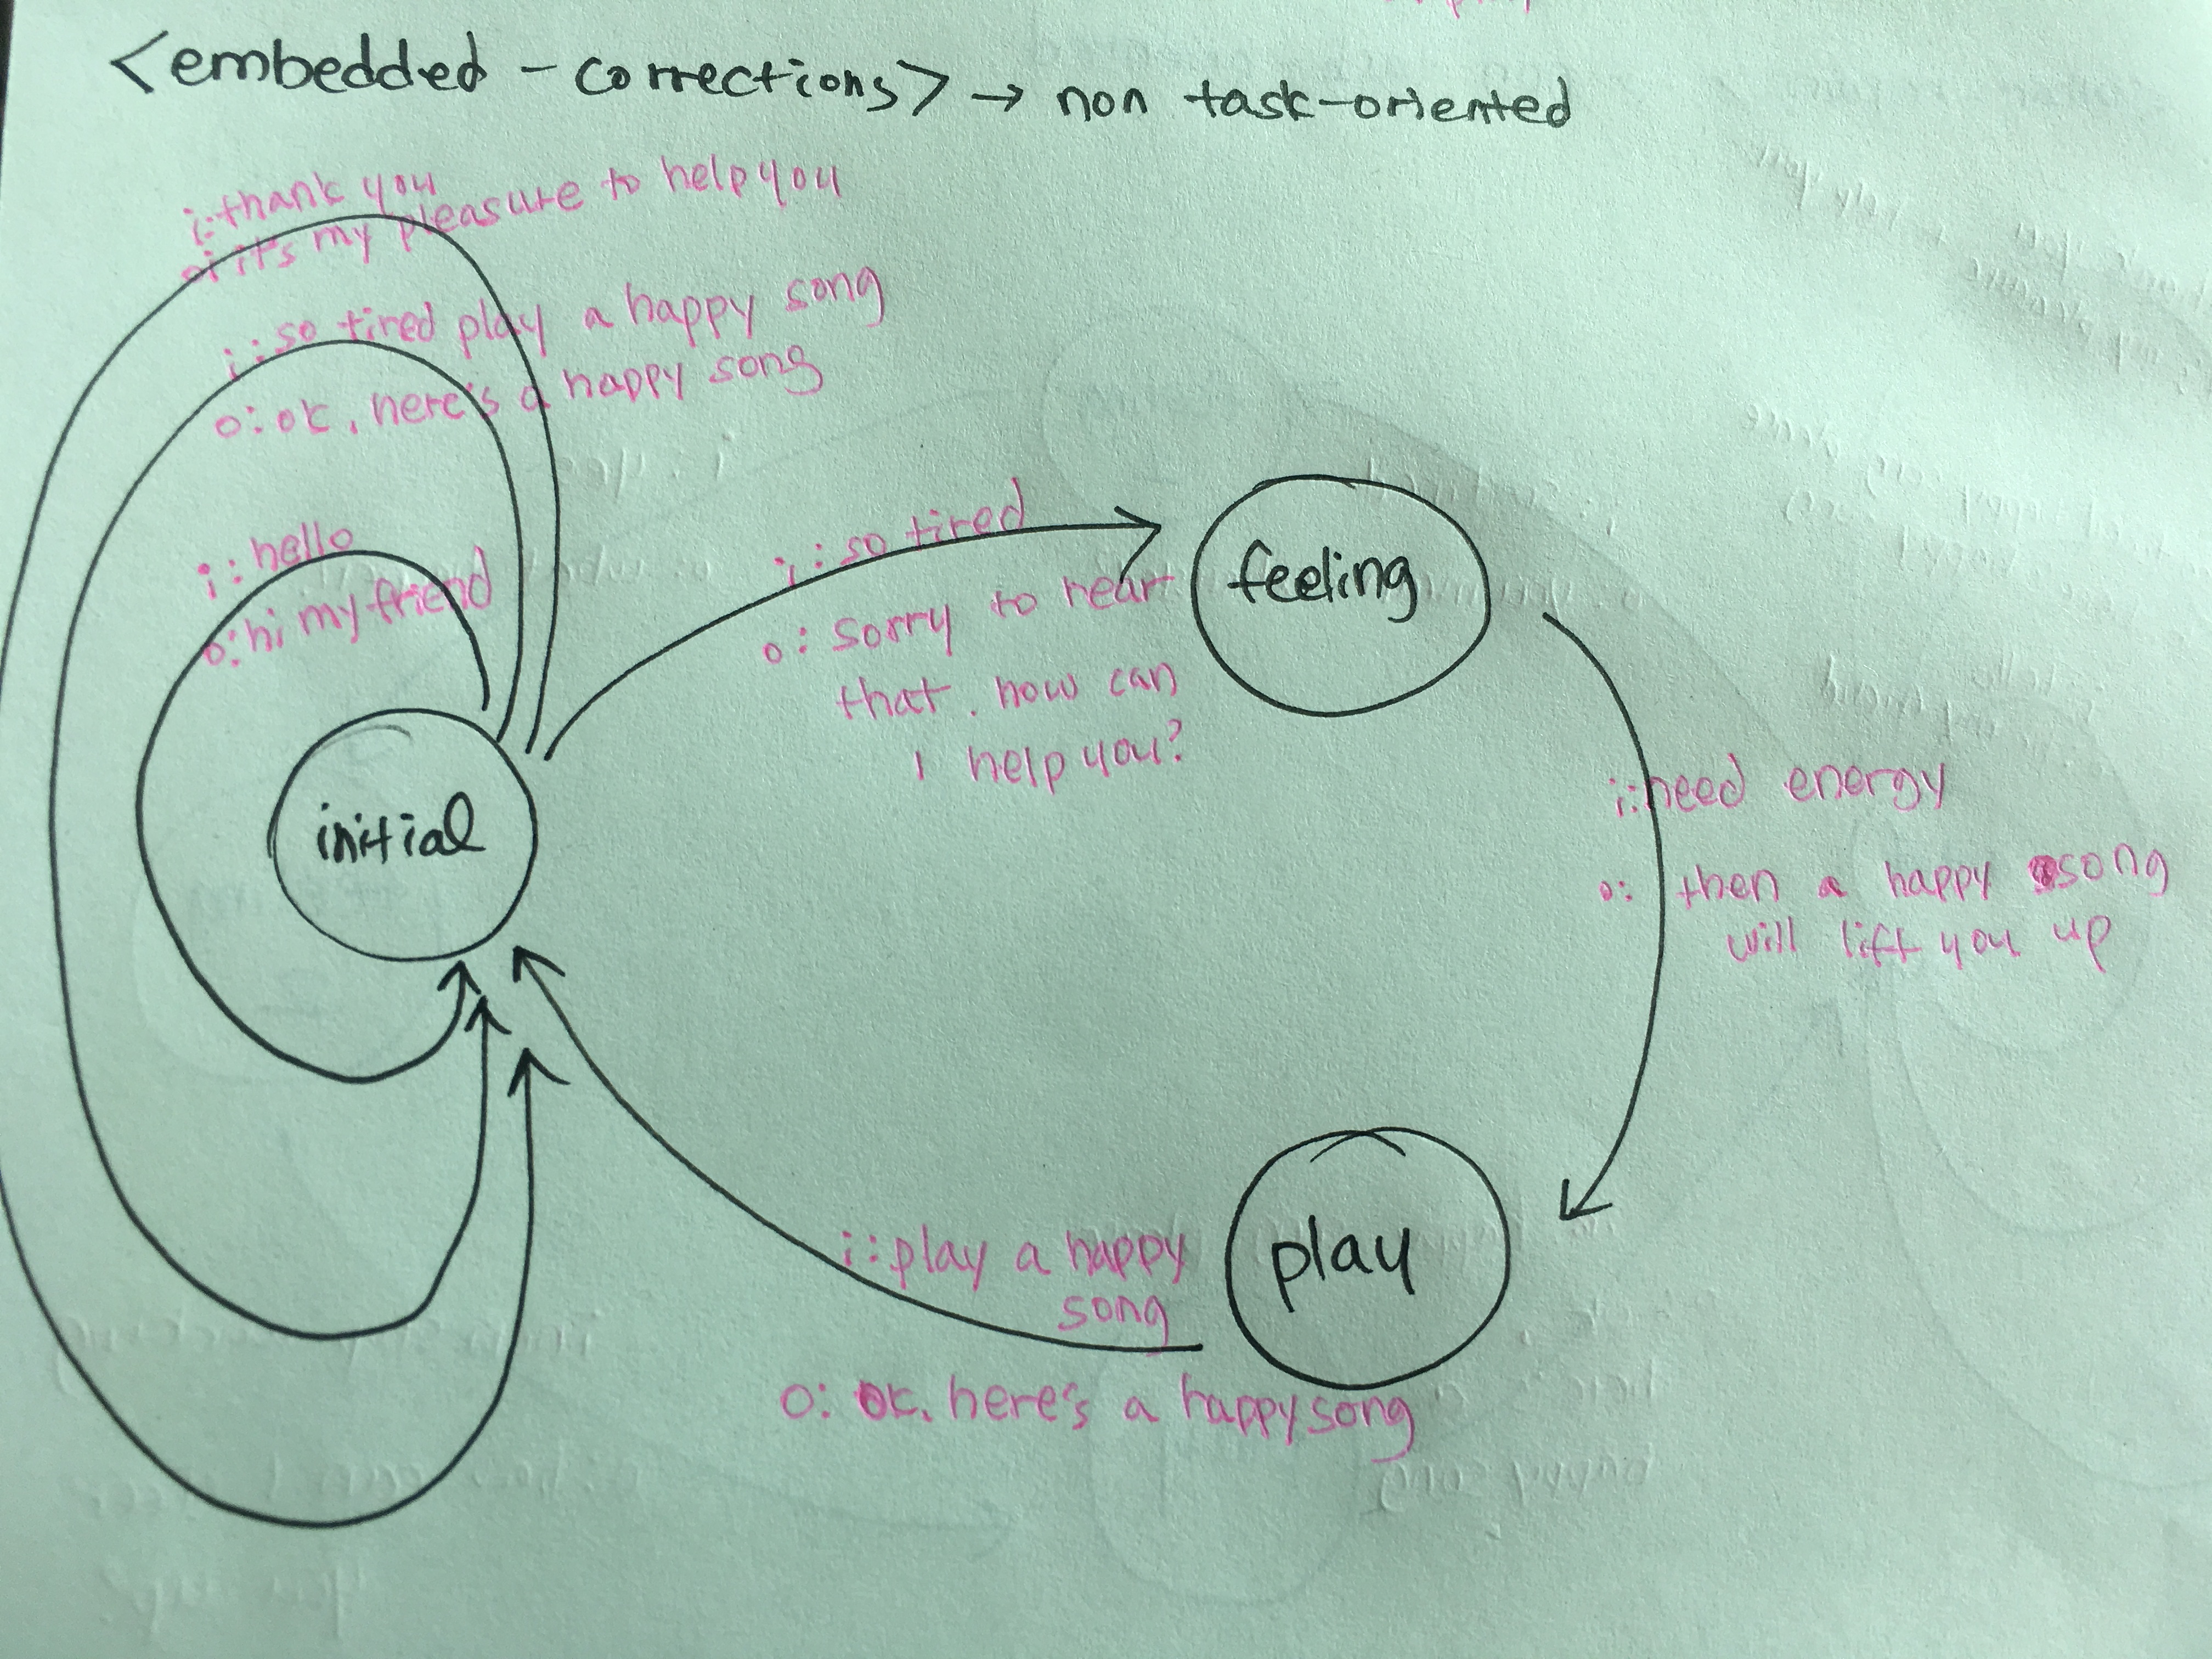 <embedded - corrections> → non task-oriented
i: thank you
o: it's my pleasure to help you
i: so tired play a happy song
o: ok, here's a happy song
i: hello
o: hi my friend
i: so tired
o: sorry to hear
that. how can
I help you?
feeling
initial
i: need energy
o: then a happy song
will lift you up
play
i: play a happy
song
o: ok. here's a happy song